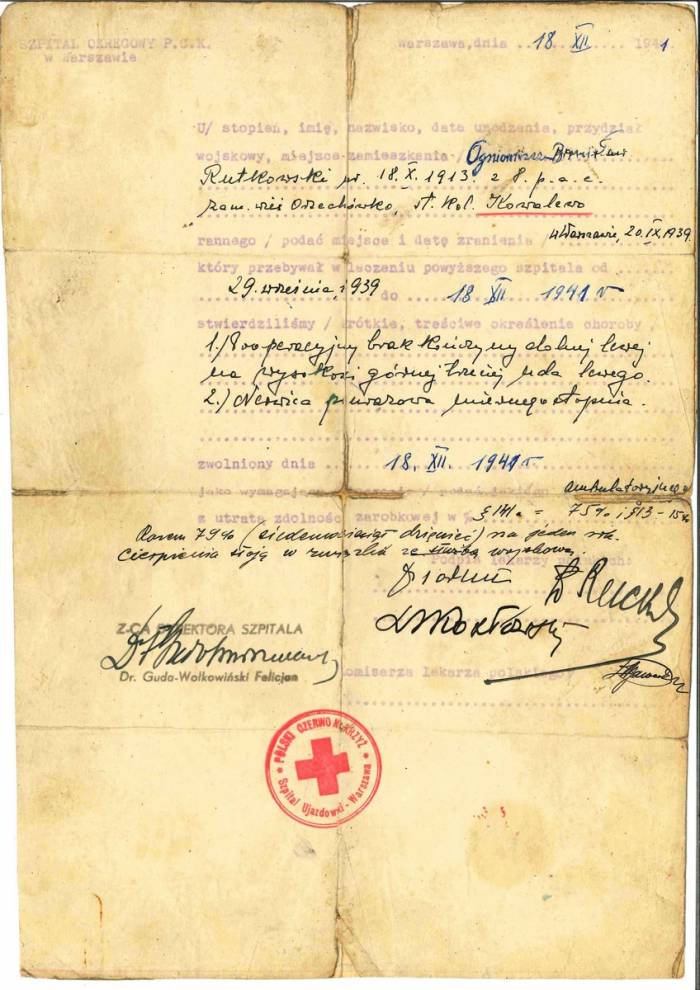 SZPITAL OKRĘGOWY P.C.K.
w Warszawie
Warszawa, dnia .. 18 XII .... 1941
U/ stopień, imię, nazwisko, data urodzenia, przydział
wojskowy, miejsce zamieszkania / Ogniomistrz Bronisław
Rutkowski ur. 18.X.1913 z 8. p.a.c.
zam. wieś Orzechówko, st. kol. Kowalewo
rannego / podać miejsce i datę zranienia / w Warszawie, 20.IX.1939
który przebywał w leczeniu powyższego szpitala od
29 września 1939 do 18 XII 1941 r
stwierdziliśmy / krótkie, treściwe określenie choroby
1./ Pooperacyjny brak kończyny dolnej lewej
na wysokości górnej trzeciej uda lewego.
2.) Nerwica miernego stopnia.
zwolniony dnia ... 18. XII. 1941 r
jako ambulatoryjnego
z utratą zdolności zarobkowej w % § 141a = 75% i § 13 - 15%
Razem 79% (siedemdziesiąt dziewięć) na jeden rok.
Cierpienia stoją w związku ze służbą wojskową.
podpis lekarzy
Z-CA DYREKTORA SZPITALA
Dr. Guda-Wołkowiński Felicjan
komisarza lekarza polskiego
POLSKI CZERWONY KRZYŻ
Szpital Ujazdowki - Warszawa